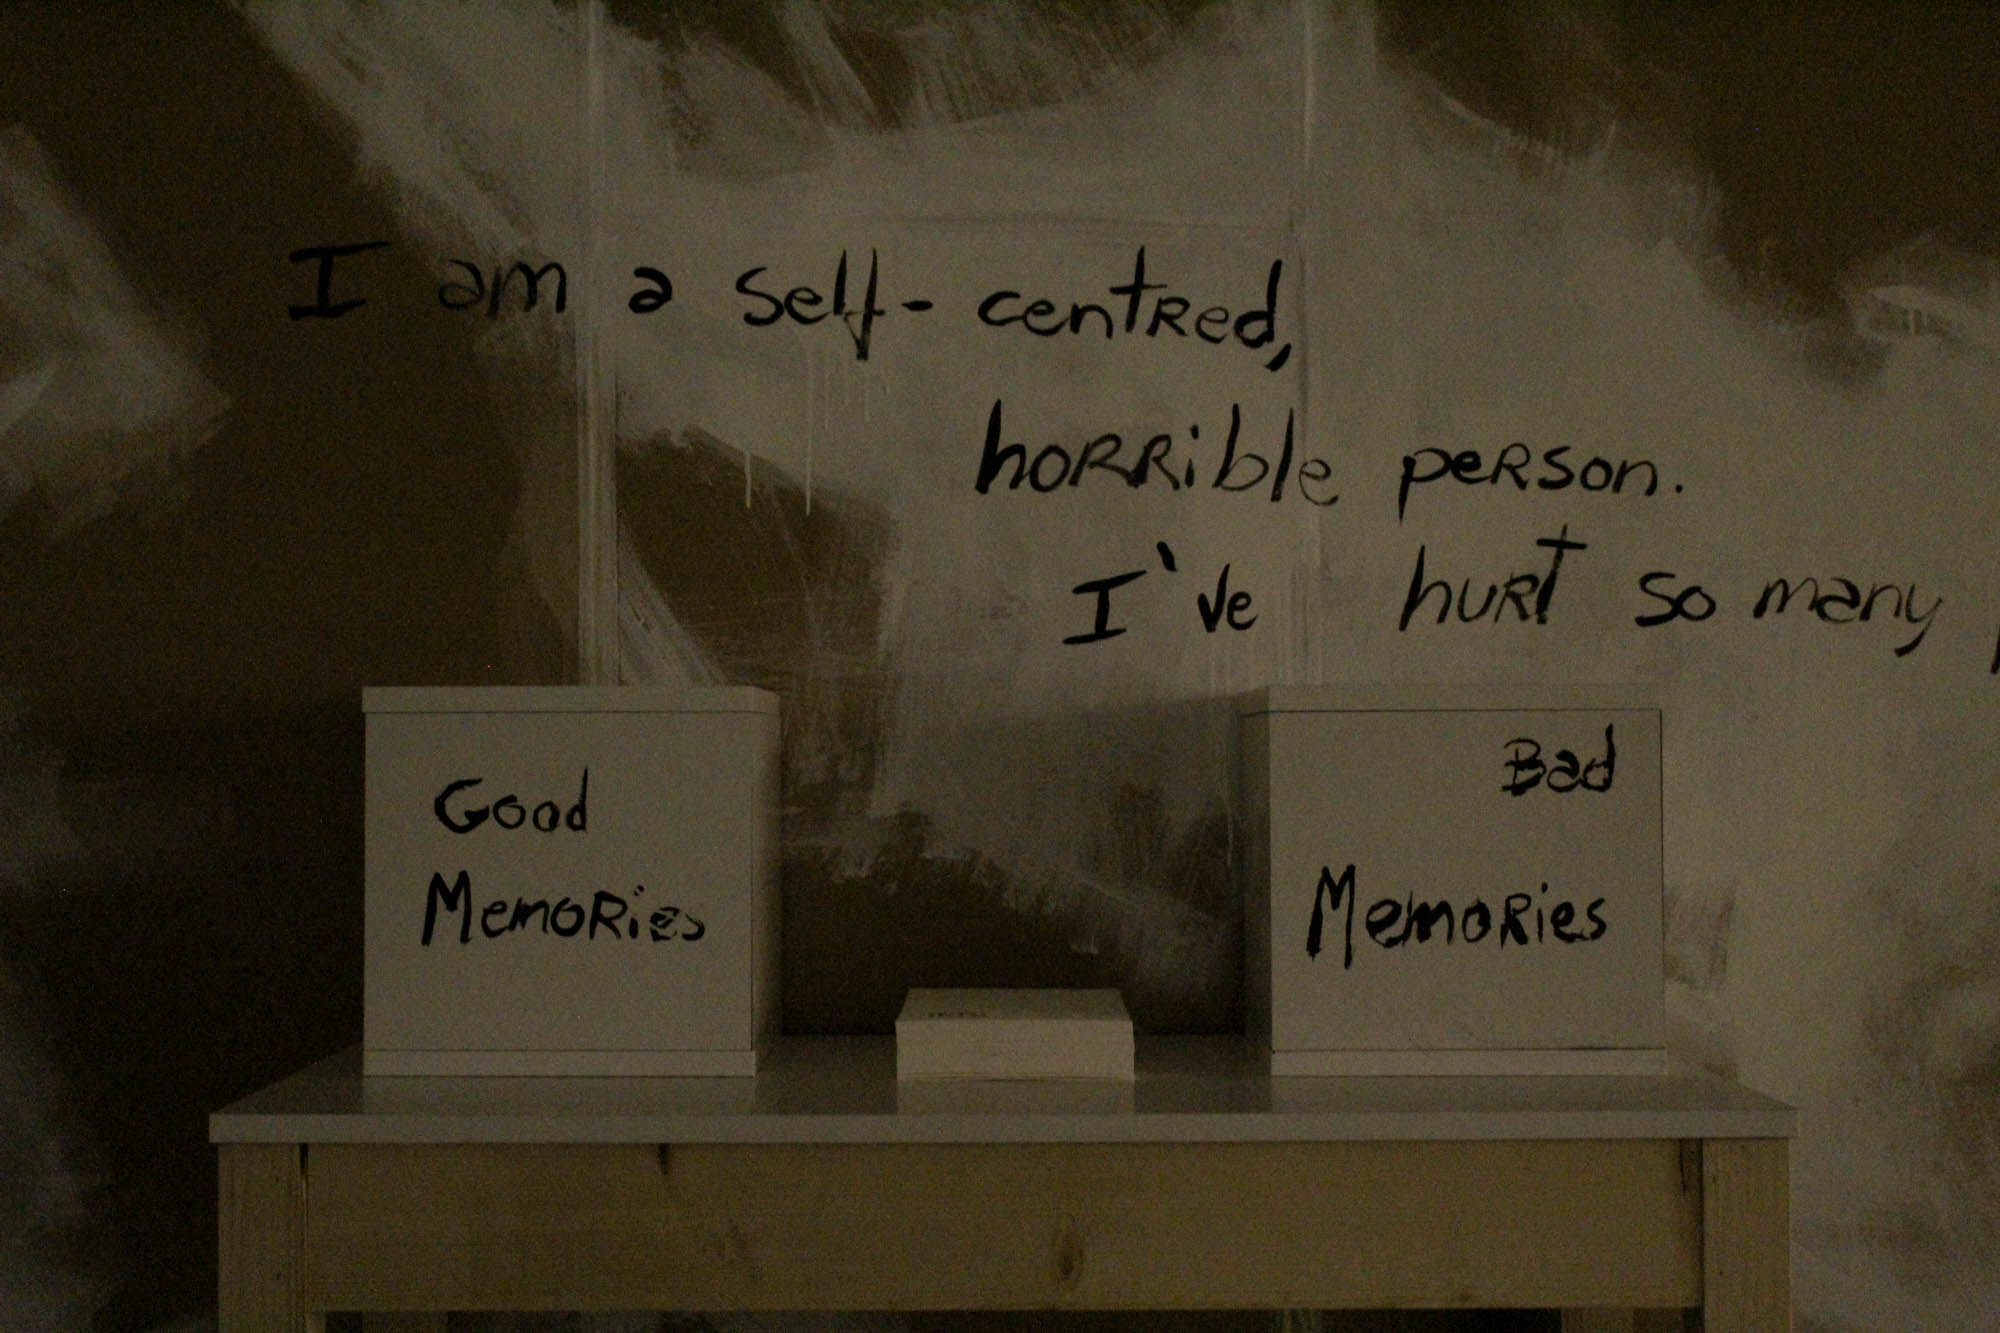 I am a self-centred,
horrible person.
I've hurt so many
Good
Memories
Bad
Memories